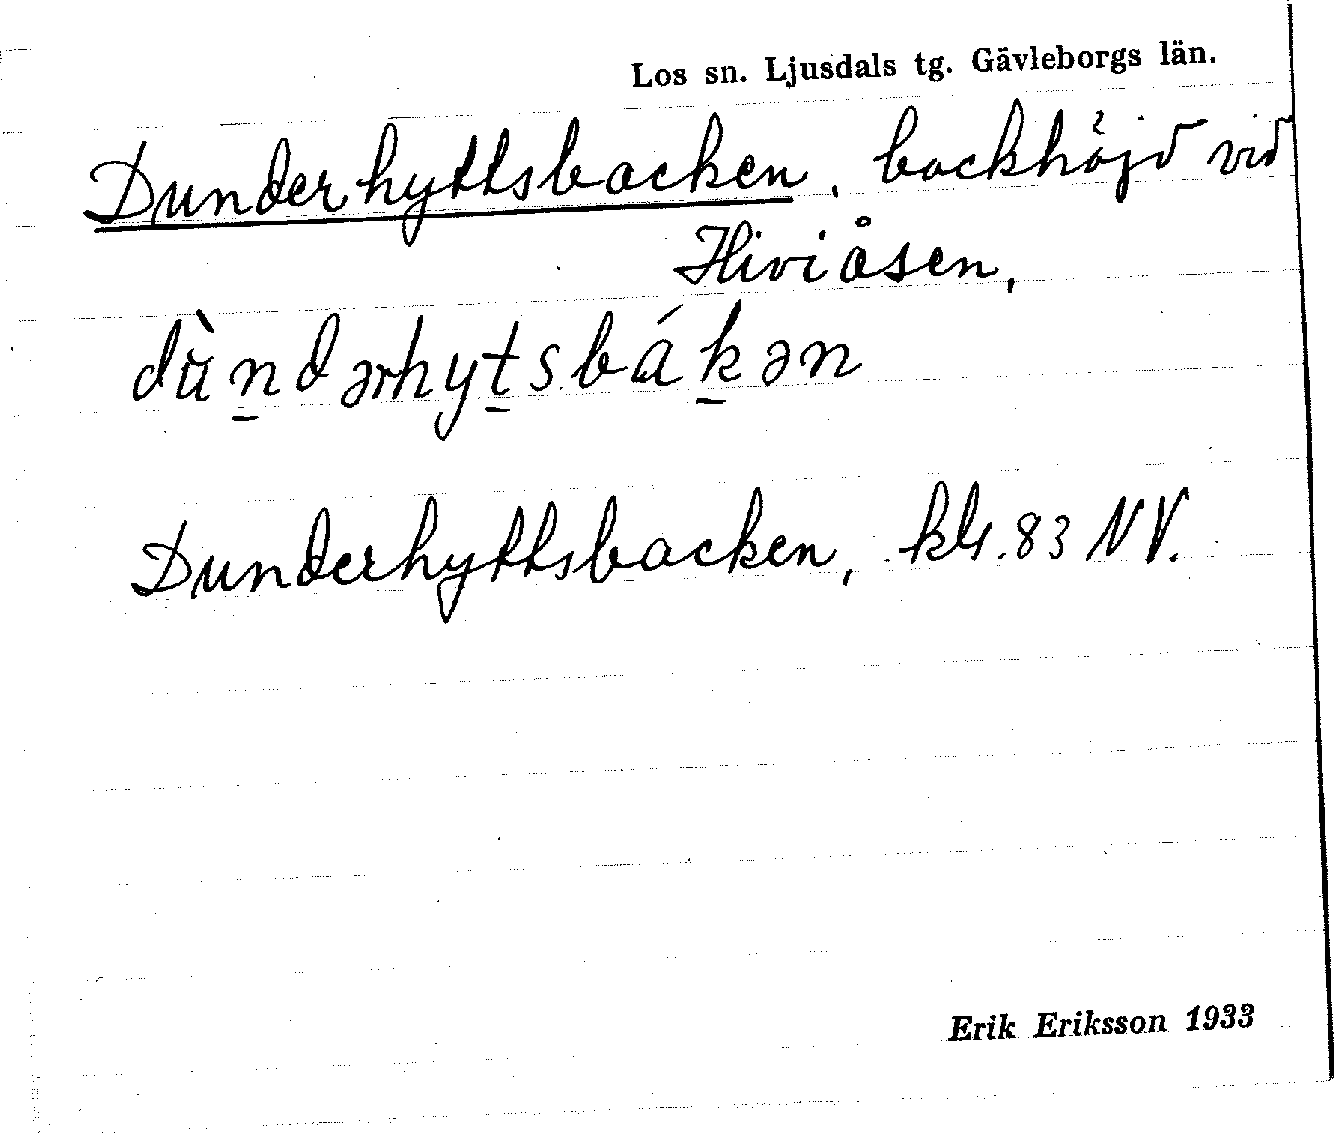 Los sn. Ljusdals tg. Gävleborgs län.
Dunderhyttsbacken, backhöjd vid
Hiviåsen,
dùn̲dərhyt̲sbák̲ən
Dunderhyttsbacken, kbl. 83 NV.
Erik Eriksson 1933